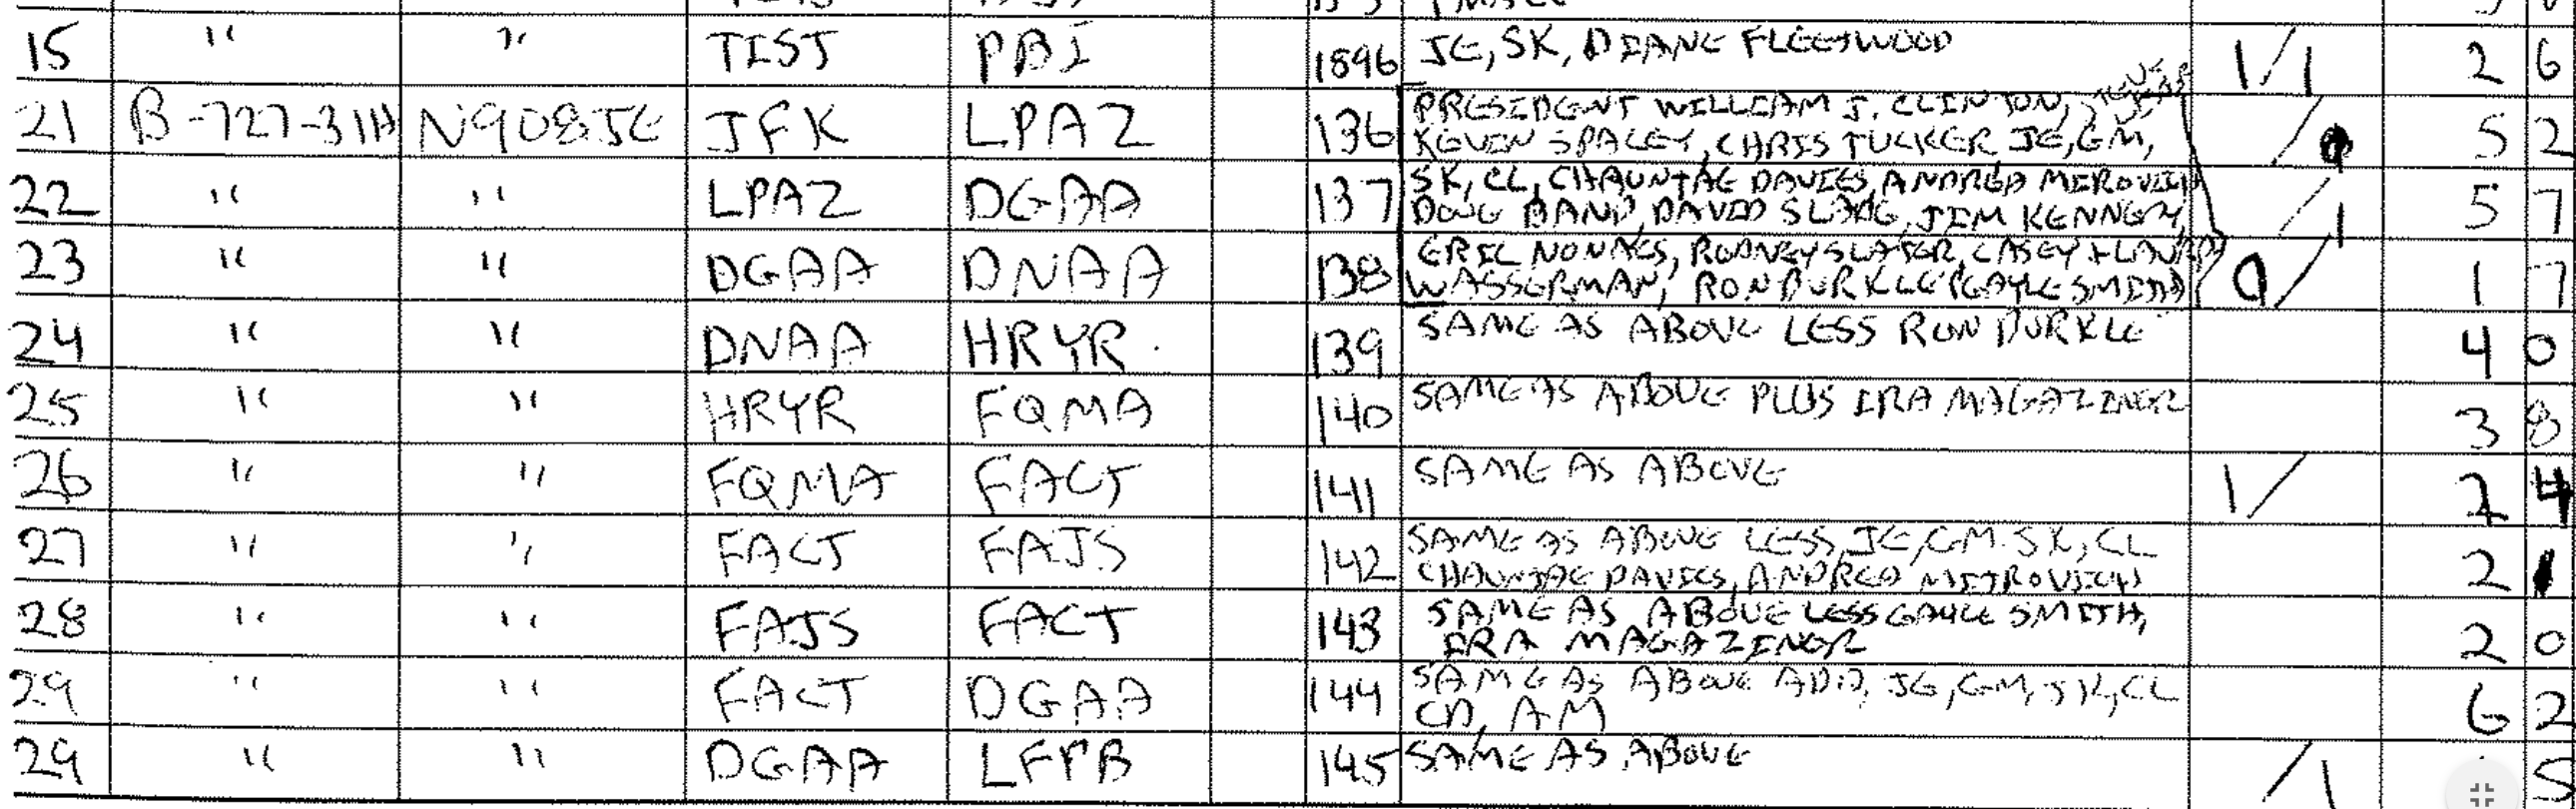 15 " " TIST PBI 1896 JE, SK, DIANE FLEETWOOD 1/1 2 6
21 B-727-31H N908JE JFK LPAZ 136 PRESIDENT WILLIAM J. CLINTON,
KEVIN SPACEY, CHRIS TUCKER JE, GM, / 5 2
22 " " LPAZ DGAA 137 SK, CL, CHAUNTAE DAVIES, ANDREA MITROVICH
DOUG BAND, DAVID SLANG, JIM KENNEDY, /1 5 7
23 " " DGAA DNAA 138 ERIC NONACS, RODNEY SLATER, CASEY + LAURA
WASSERMAN, RON BURKLE, GAYLE SMITH / 1 1 7
24 " " DNAA HRYR. 139 SAME AS ABOVE LESS RON BURKLE 4 0
25 " " HRYR FQMA 140 SAME AS ABOVE PLUS IRA MAGAZINER 3 8
26 " " FQMA FACT 141 SAME AS ABOVE 1/ 2 4
27 " " FACT FAJS 142 SAME AS ABOVE LESS, JE, GM. SK, CL
CHAUNTAE DAVIES, ANDREA MITROVICH 2 1
28 " " FAJS FACT 143 SAME AS ABOVE LESS GAYLE SMITH,
IRA MAGAZINER 2 0
29 " " FACT DGAA 144 SAME AS ABOVE ADD, JE, GM, SK, CL
CD, AM 6 2
29 " " DGAA LFPB 145 SAME AS ABOVE /1 5